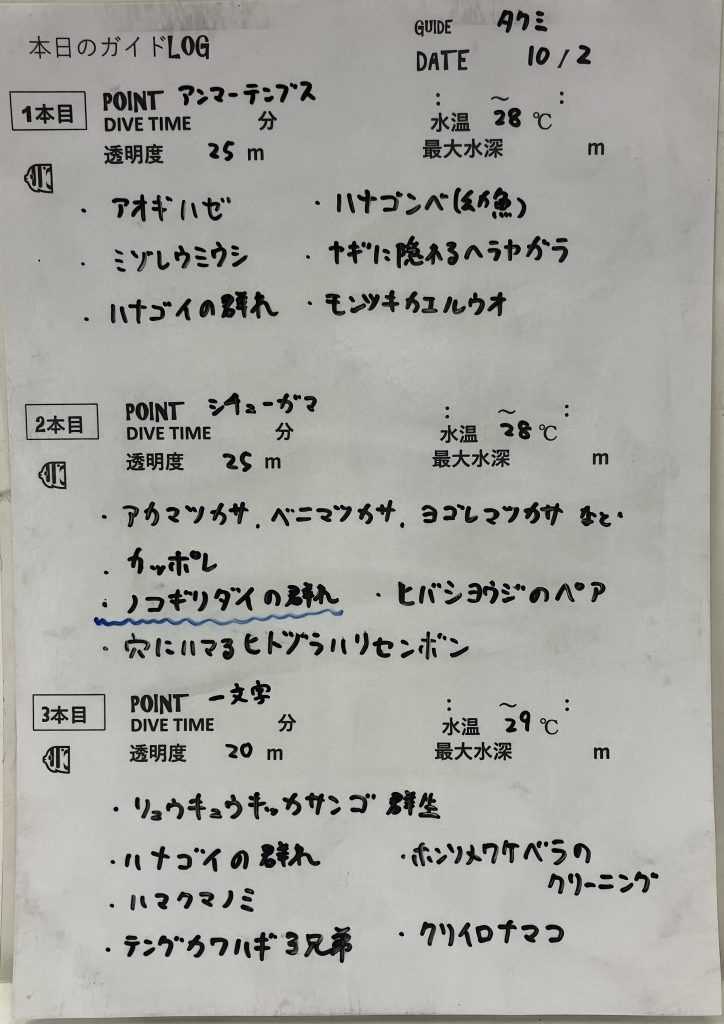 本日のガイドLOG
GUIDE タクミ
DATE 10/2
1本目
POINT アンマーテンブス
: ～ :
DIVE TIME 分
水温 28 ℃
透明度 25 m
最大水深 m
・アオギハゼ ・ハナゴンベ(幼魚)
・ミゾレウミウシ ・ヤギに隠れるヘラヤガラ
・ハナゴイの群れ ・モンツキカエルウオ
2本目
POINT シチューガマ
: ～ :
DIVE TIME 分
水温 28 ℃
透明度 25 m
最大水深 m
・アカマツカサ、ベニマツカサ、ヨゴレマツカサ など・
・カッポレ
・ノコギリダイの群れ ・ヒバシヨウジのペア
・穴にハマるヒトヅラハリセンボン
3本目
POINT 一文字
: ～ :
DIVE TIME 分
水温 29 ℃
透明度 20 m
最大水深 m
・リュウキュウキッカサンゴ 群生
・ハナゴイの群れ ・ホンソメワケベラの
クリーニング
・ハマクマノミ
・テングカワハギ3兄弟 ・クリイロナマコ